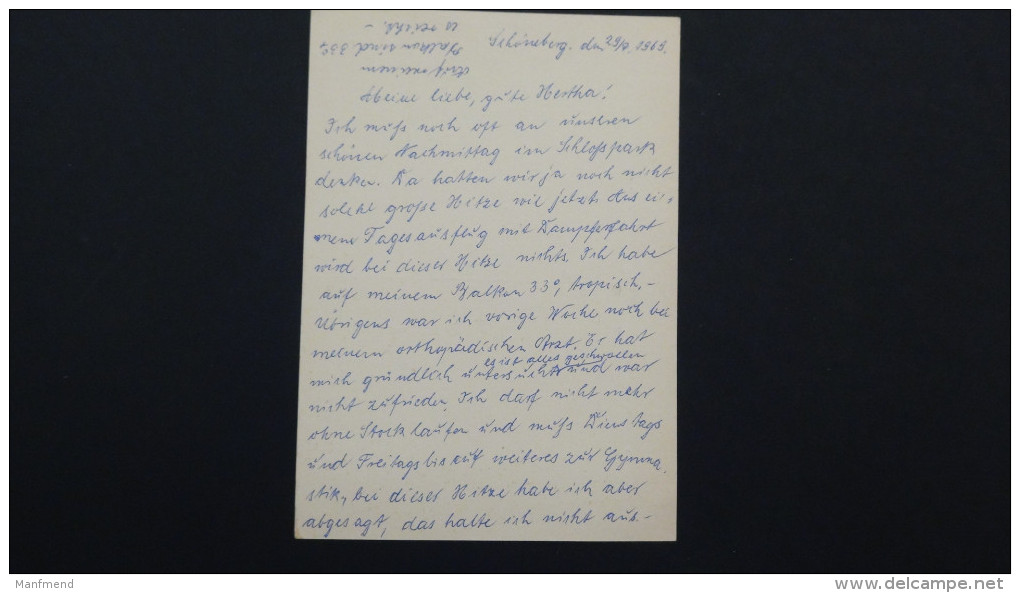 Schöneberg, den 29/7. 1969.
Auf meinem
Balkon sind 33°,
es reicht. –
Meine liebe, gute Hertha!
Ich muß noch oft an unseren
schönen Nachmittag im Schloßpark
denken. Da hatten wir ja noch nicht
solche große Hitze wie jetzt. Aus ei-
nem Tagesausflug mit Dampferfahrt
wird bei dieser Hitze nichts. Ich habe
auf meinem Balkon 33°, tropisch. –
Übrigens war ich vorige Woche noch bei
meinem orthopädischen Arzt. Er hat
es ist alles geschwollen
mich gründlich untersucht und war
nicht zufrieden. Ich darf nicht mehr
ohne Stock laufen und muß Dienstags
und Freitags bis auf weiteres zur Gymna-
stik, bei dieser Hitze habe ich aber
abgesagt, das halte ich nicht aus. –
Manfmend
www.delcampe.net